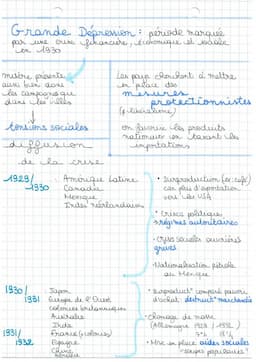 Grande Dépression : période marquée
par une crise financière, économique et sociale
en 1930
misère présente
aussi bien dans
les campagnes que
dans les villes
↓
tensions sociales
Les pays cherchent à mettre
en place des
mesures
protectionnistes
(≠ libéralisme)
on favorise les produits
nationaux en taxant les
importations
diffusion
de la crise
1929/
1930
Amérique Latine
Canada
Mexique
Indes Néerlandaises
• Surproduction (ex: café)
car plus d'exportation
vers les USA
• Crises politiques
→ régimes autoritaires
• Crises sociales ouvrières
graves
• Nationalisation pétrole
au Mexique
1930/
1931
Japon
Europe de l'Ouest
colonies britanniques
Australie
Inde
1931/
1932
France (+ colonies)
Espagne
Chine
• Surproduct° comparé pouvoir
d'achat : destruct° marchandise
• Chômage de masse
(Allemagne 1929 / 1932)
• Mise en place aides sociales
"soupes populaires"